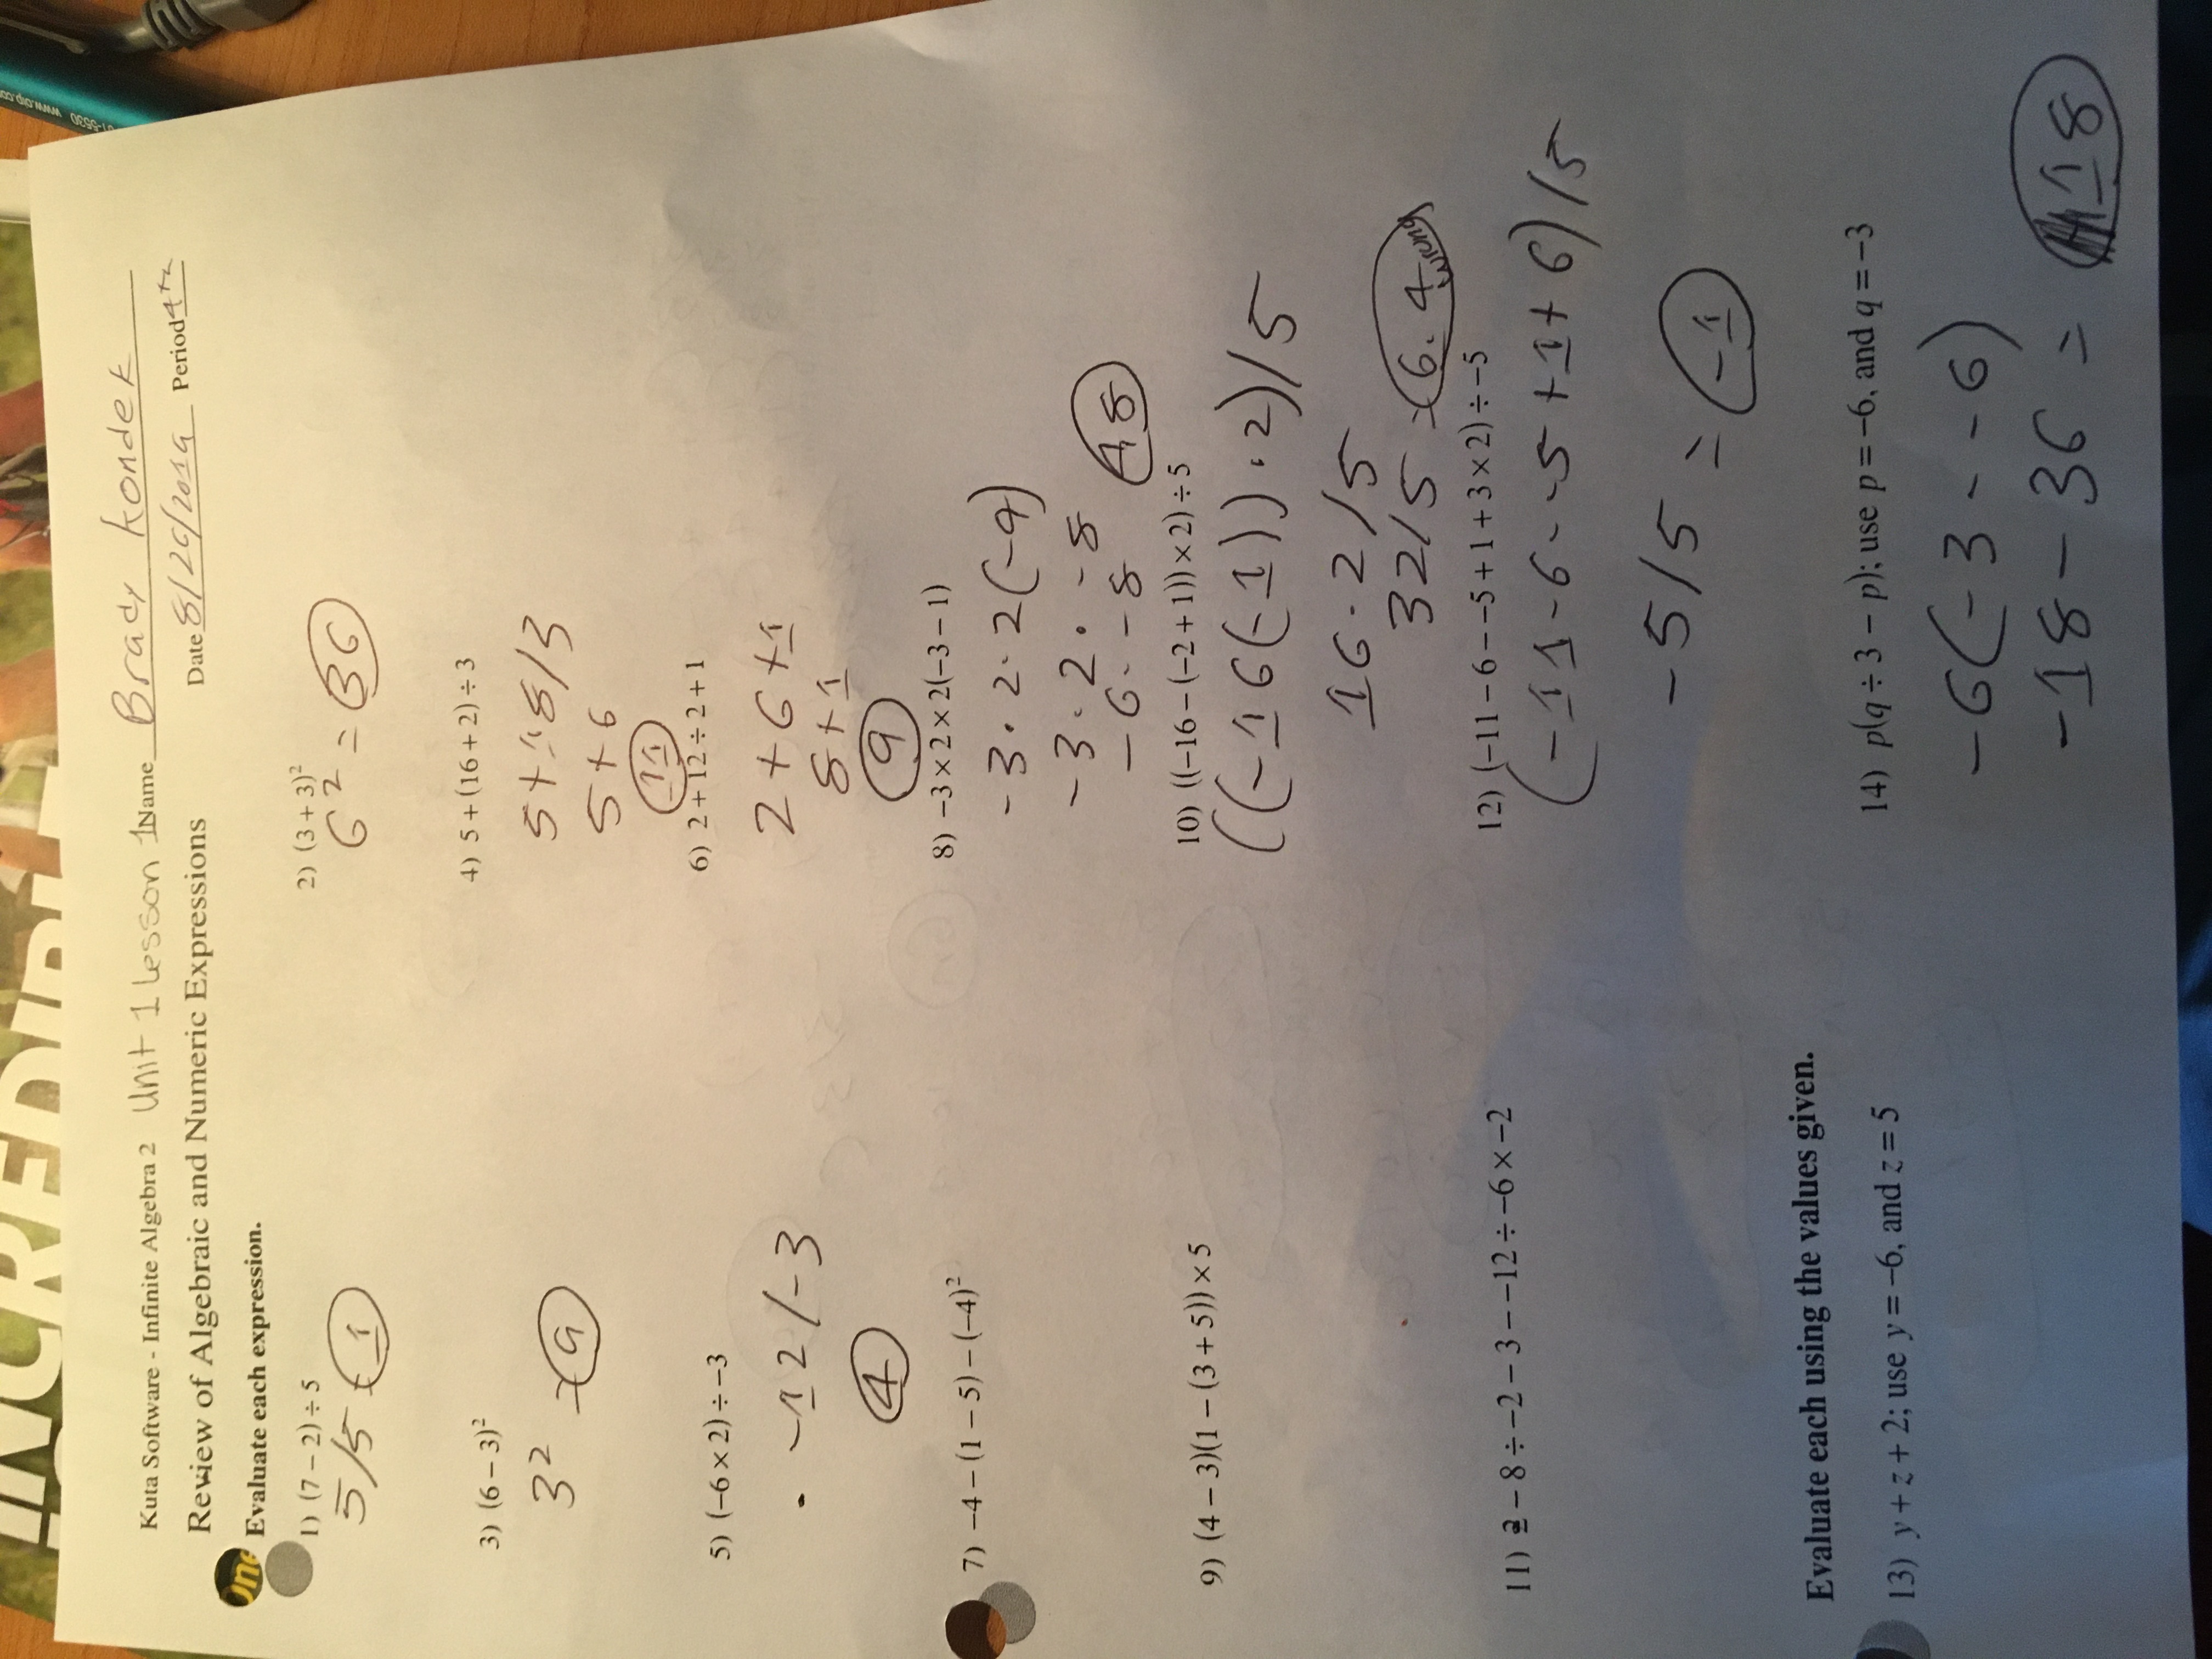 INCREDIBLE
www.
Kuta Software - Infinite Algebra 2 Unit 1 lesson 1 Name Brady Kondek
Review of Algebraic and Numeric Expressions Date 8/26/2019 Period 4th
One
Evaluate each expression.
1) (7 – 2) ÷ 5
5/5 = 1
2) (3 + 3)²
6² = 36
3) (6 – 3)²
3² = 9
4) 5 + (16 + 2) ÷ 3
5+18/3
5+6
11
5) (–6 × 2) ÷ –3
-12/-3
4
6) 2 + 12 ÷ 2 + 1
2+6+1
8+1
9
7) –4 – (1 – 5) – (–4)²
8) –3 × 2 × 2(–3 – 1)
-3·2·2(-4)
-3·2·-8
-6·-8 48
9) (4 – 3)(1 – (3 + 5)) × 5
10) ((–16 – (–2 + 1)) × 2) ÷ 5
((-16(-1))·2)/5
16·2/5
32/5 = 6.4 wrong
11) 2 – 8 ÷ –2 – 3 – –12 ÷ –6 × –2
12) (–11 – 6 – –5 + 1 + 3 × 2) ÷ –5
(-11-6--5+1+6)/5
-5/5 = -1
Evaluate each using the values given.
13) y + z + 2; use y = –6, and z = 5
14) p(q ÷ 3 – p); use p = –6, and q = –3
-6(-3--6)
-18-36 = 18